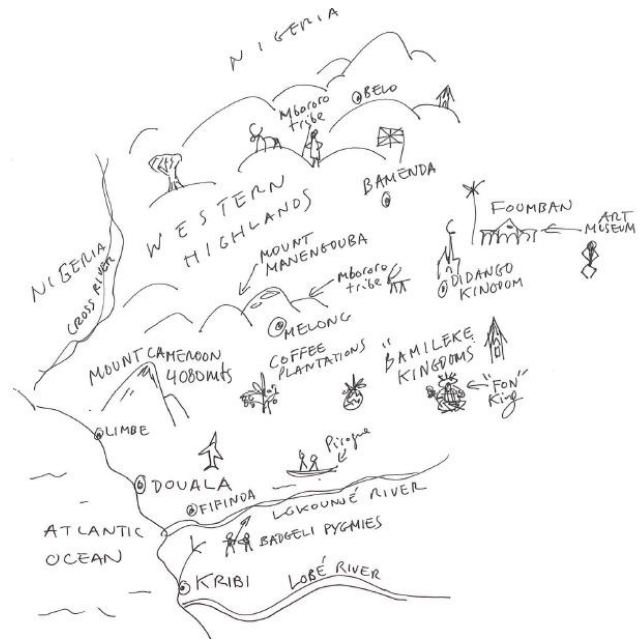 NIGERIA
BELO
Mbororo
tribe
BAMENDA
WESTERN
HIGHLANDS
FOUMBAN
ART
MUSEUM
NIGERIA
CROSS RIVER
MOUNT
MANENGOUBA
Mbororo
tribe
DIDANGO
KINGDOM
MELONG
MOUNT CAMEROON
4080mts
COFFEE
PLANTATIONS
"BAMILEKE
KINGDOMS
"FON"
King
LIMBE
DOUALA
Pirogue
FIFINDA
LOKOUNJÉ RIVER
ATLANTIC
OCEAN
BADGELI PYGMIES
KRIBI
LOBÉ RIVER